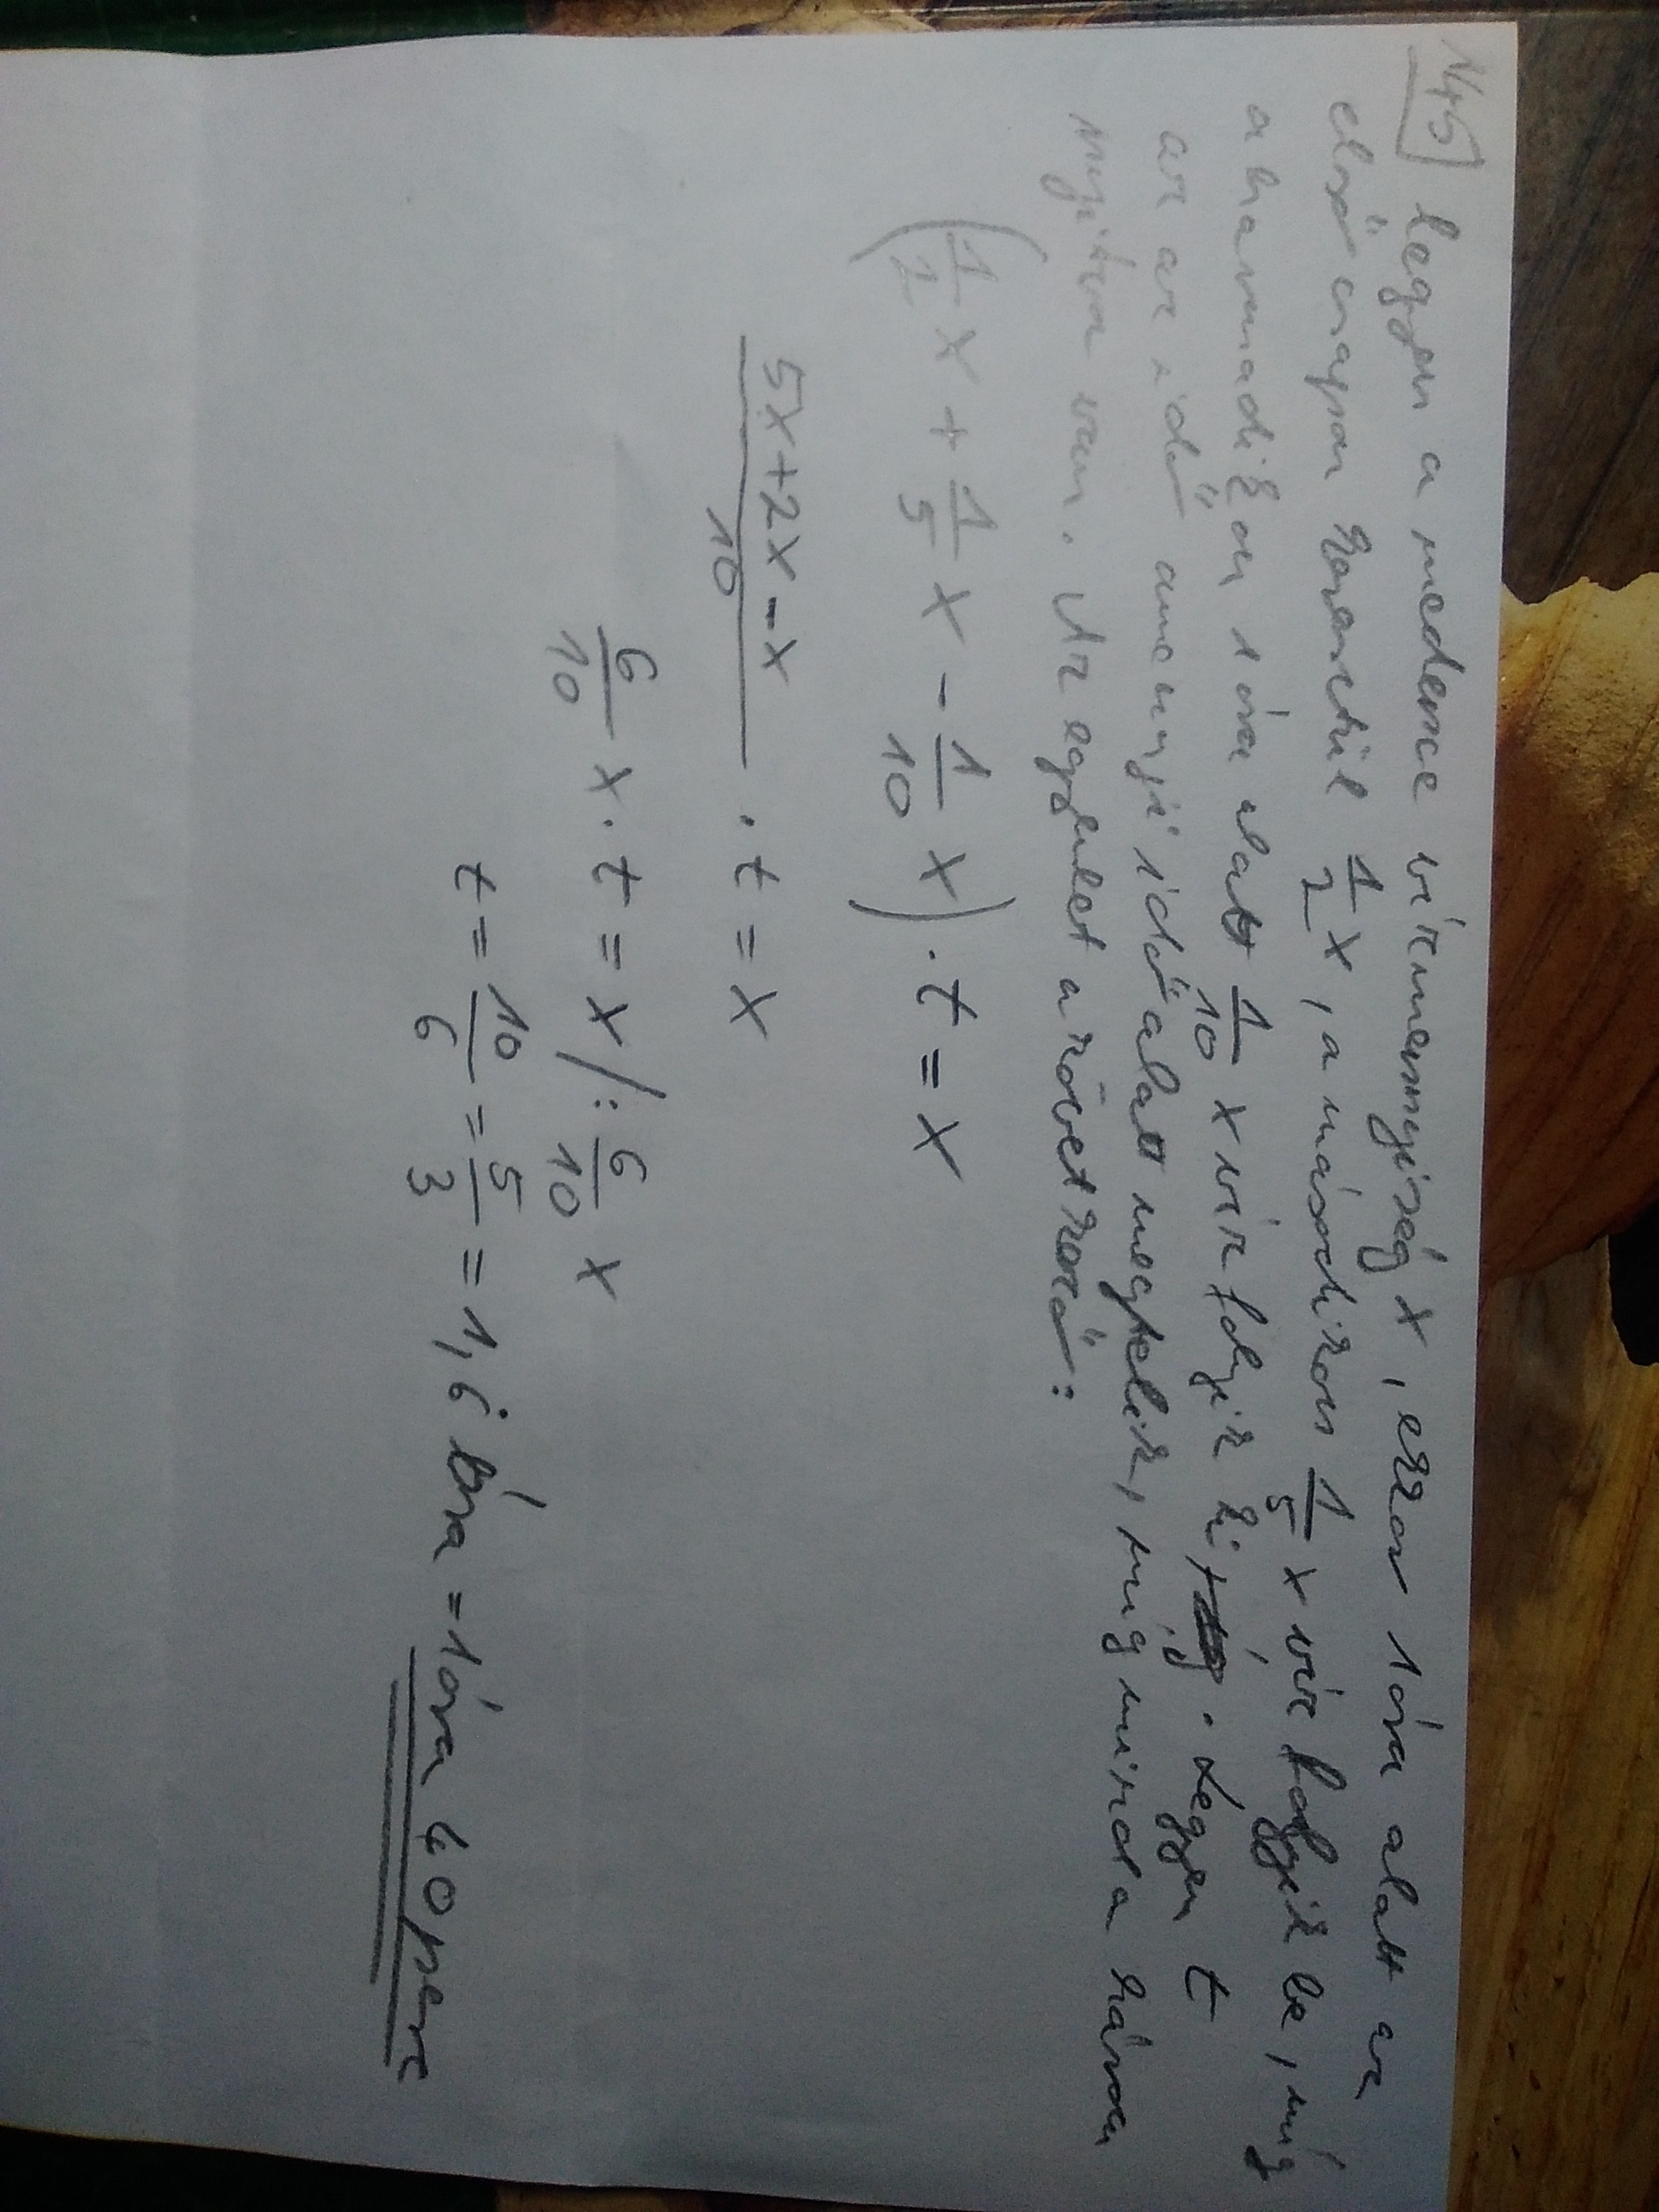 N45 legyen a medence vízmennyiség x, ekkor 1 óra alatt az
első csapon keresztül 1/2 x, a másodikon 1/5 x víz folyik be, míg
a harmadikon 1 óra alatt 1/10 x víz folyik ki, . Legyen t
az az idő amennyi idő alatt megtelik, míg mind a három
nyitva van. Az egyenlet a következő:
(1/2 x + 1/5 x - 1/10 x) · t = x
5x+2x-x/10 · t = x
6/10 x · t = x /: 6/10 x
t = 10/6 = 5/3 = 1,6̇ óra = 1 óra 40 perc